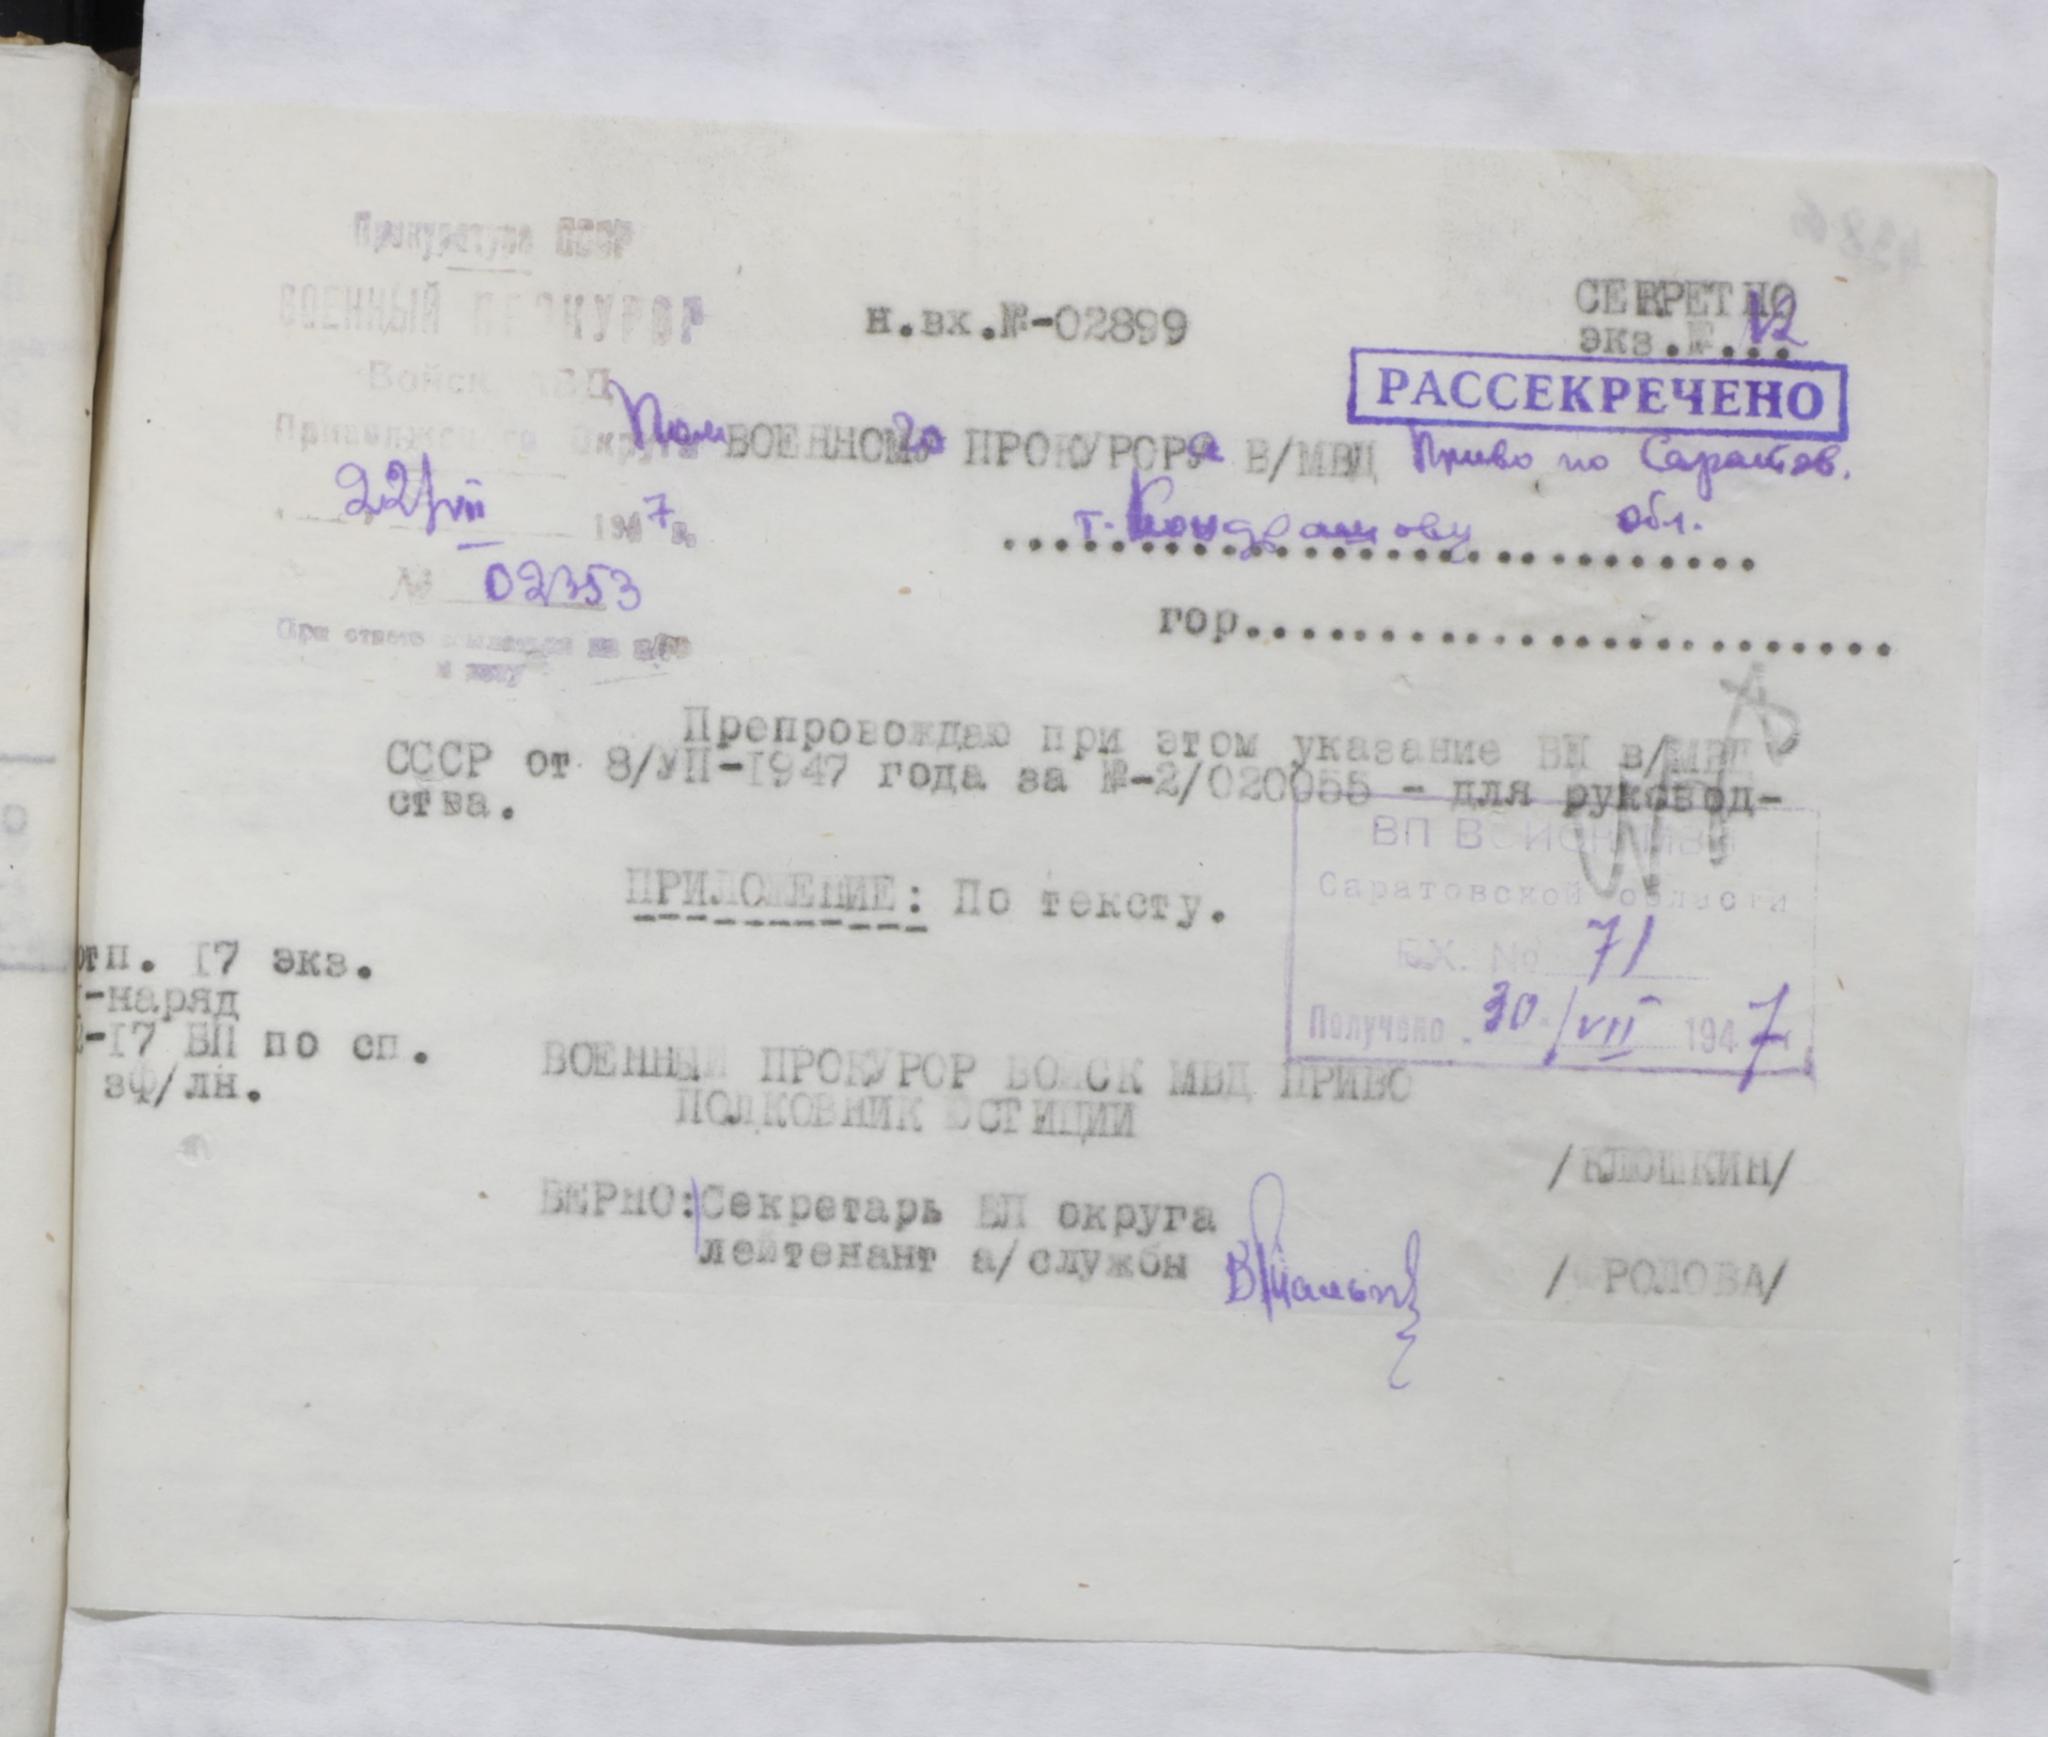 Прокуратура СССР
ВОЕННЫЙ ПРОКУРОР
Войск МВД
Приволжского Округа
22/VII 1947 г.
№ 02353
При ответе ссылаться на н/№
и дату
н.вх.№-02899
СЕКРЕТНО
экз.№...12
РАССЕКРЕЧЕНО
Пом ВОЕННОго ПРОКУРОРа В/МВД Приво по Саратов.
т. Кондрашову обл.
гор.........................
Препровождаю при этом указание ВП в/МВД
СССР от 8/УП-1947 года за №-2/020055 - для руковод-
ства.
ВП ВОЙСК МВД
Саратовской области
ВХ. № 71
Получено 30/VII 1947
ПРИЛОЖЕНИЕ: По тексту.
отп. 17 экз.
1-наряд
2-17 ВП по сп.
зф/лн.
ВОЕННЫЙ ПРОКУРОР ВОЙСК МВД ПРИВО
ПОЛКОВНИК ЮСТИЦИИ
/КЛЮШКИН/
ВЕРНО: Секретарь ВП округа
лейтенант а/службы
/ФРОЛОВА/